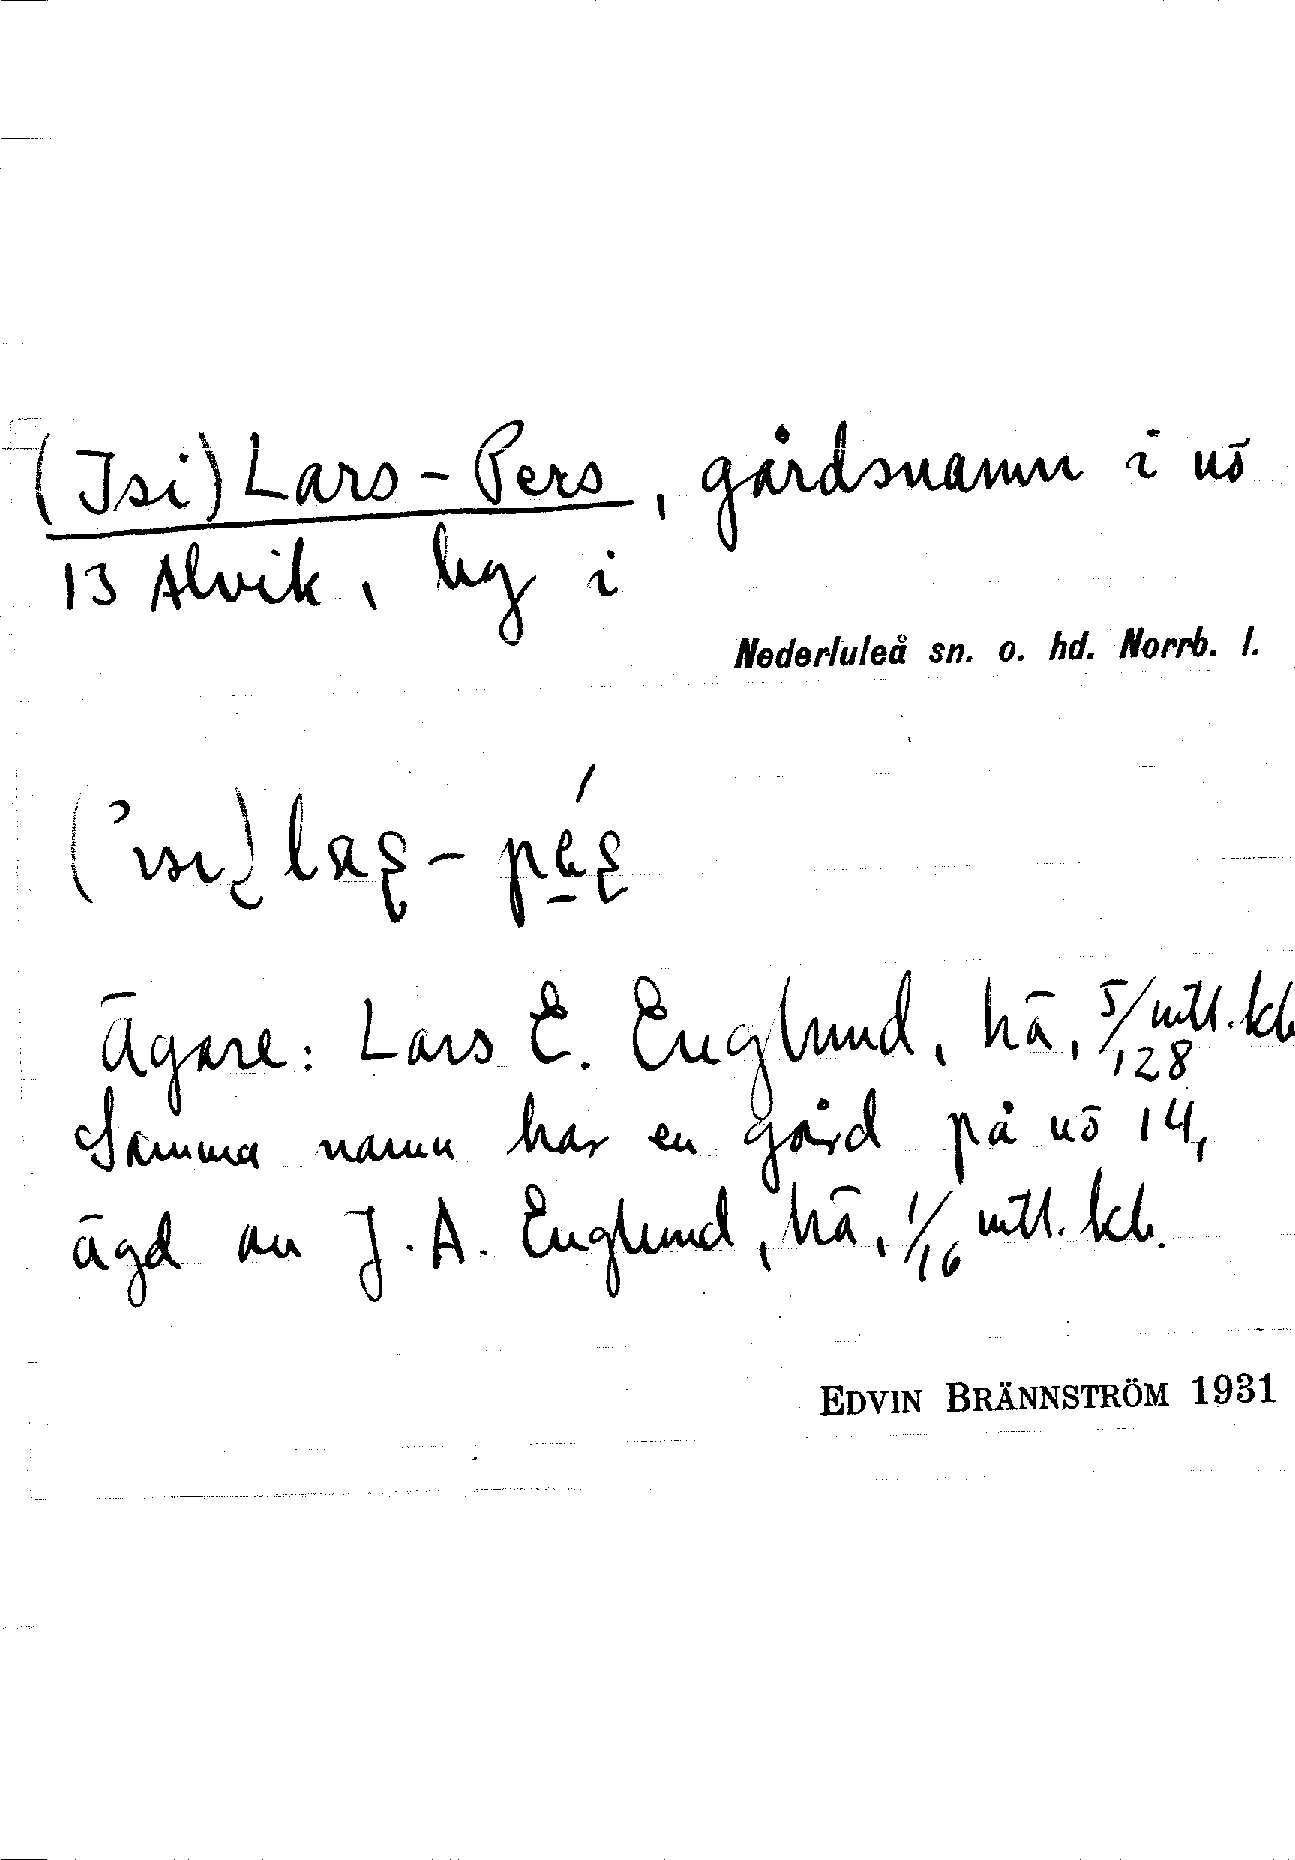 (Isi) Lars-Pers, gårdsnamn i nö
13 Alvik, hg i
Nederluleå sn. o. hd. Norrb. l.
Ägare: Lars E. Englund, hä, 5/128 mtl. kb
Samma namn har en gård på nö 14,
ägd av J. A. Englund, hä, 1/16 mtl. kb.
EDVIN BRÄNNSTRÖM 1931